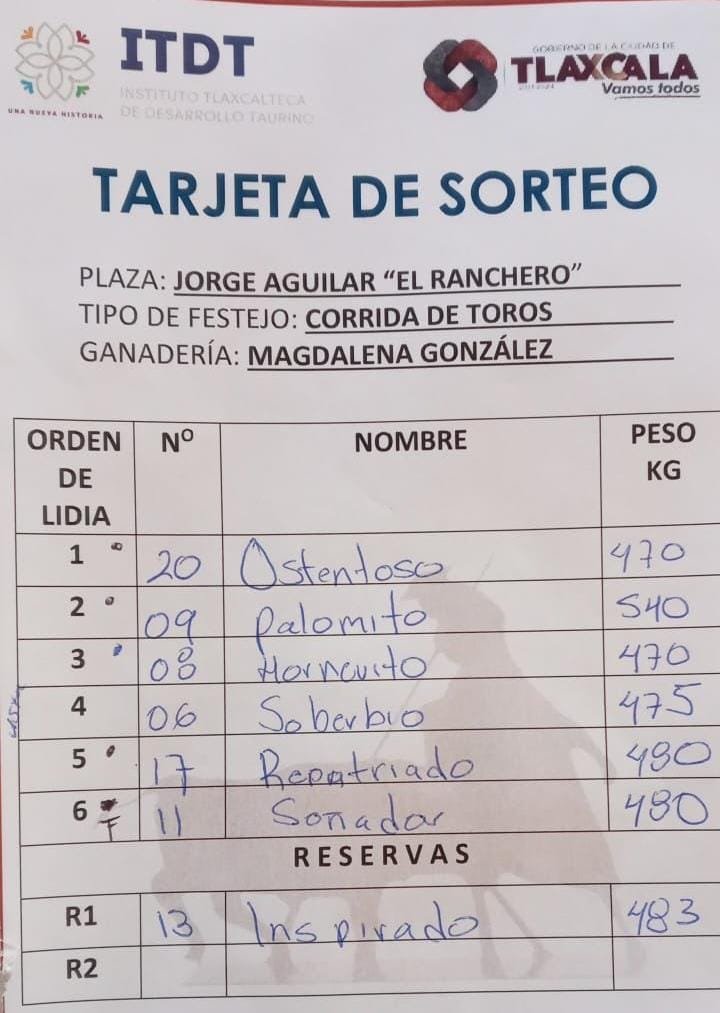 ITDT
INSTITUTO TLAXCALTECA
DE DESARROLLO TAURINO
UNA NUEVA HISTORIA
GOBIERNO DE LA CIUDAD DE
TLAXCALA
Vamos todos
TARJETA DE SORTEO
PLAZA: JORGE AGUILAR “EL RANCHERO”
TIPO DE FESTEJO: CORRIDA DE TOROS
GANADERÍA: MAGDALENA GONZÁLEZ
ORDEN DE LIDIA Nº NOMBRE PESO KG
1 20 Ostentoso 470
2 09 Palomito 540
3 08 470
4 06 Soberbio 475
5 17 Repatriado 480
6 11 Soñador 480
RESERVAS
R1 13 Inspirado 483
R2